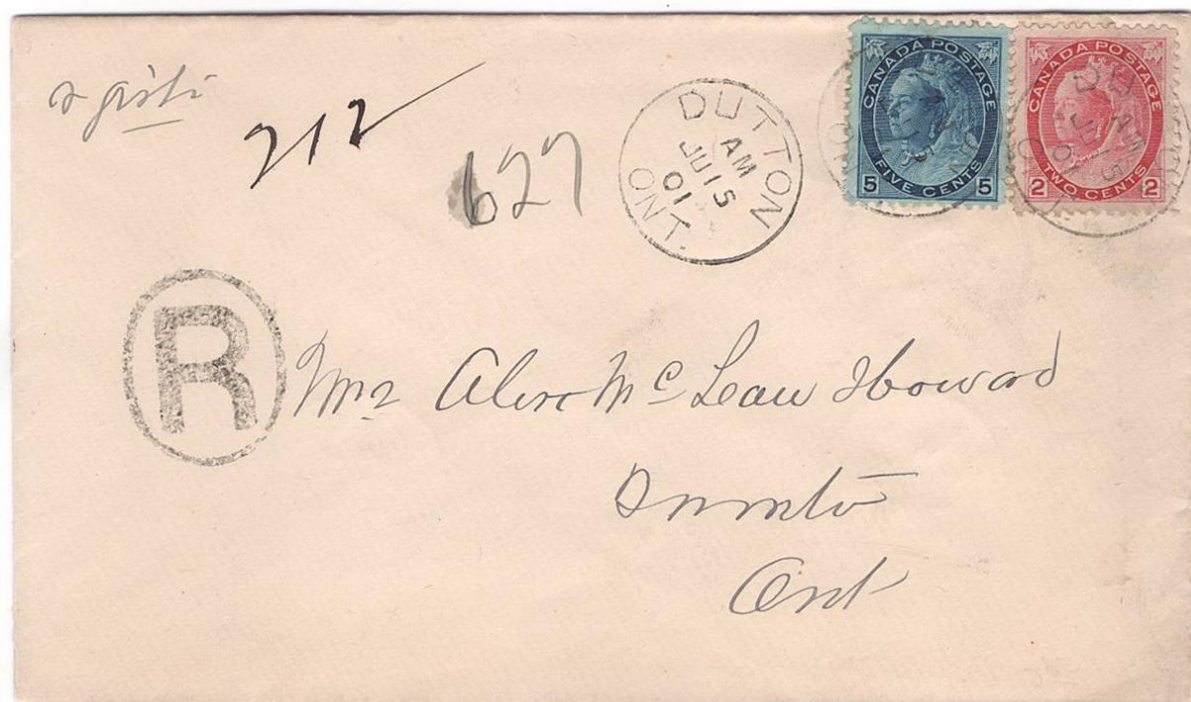 212
627
DUTTON
AM
JU 15
01
ONT.
CANADA POSTAGE
5 FIVE CENTS 5
CANADA POSTAGE
2 TWO CENTS 2
R
Mrs Alex Mc Lean Howard
Toronto
Ont